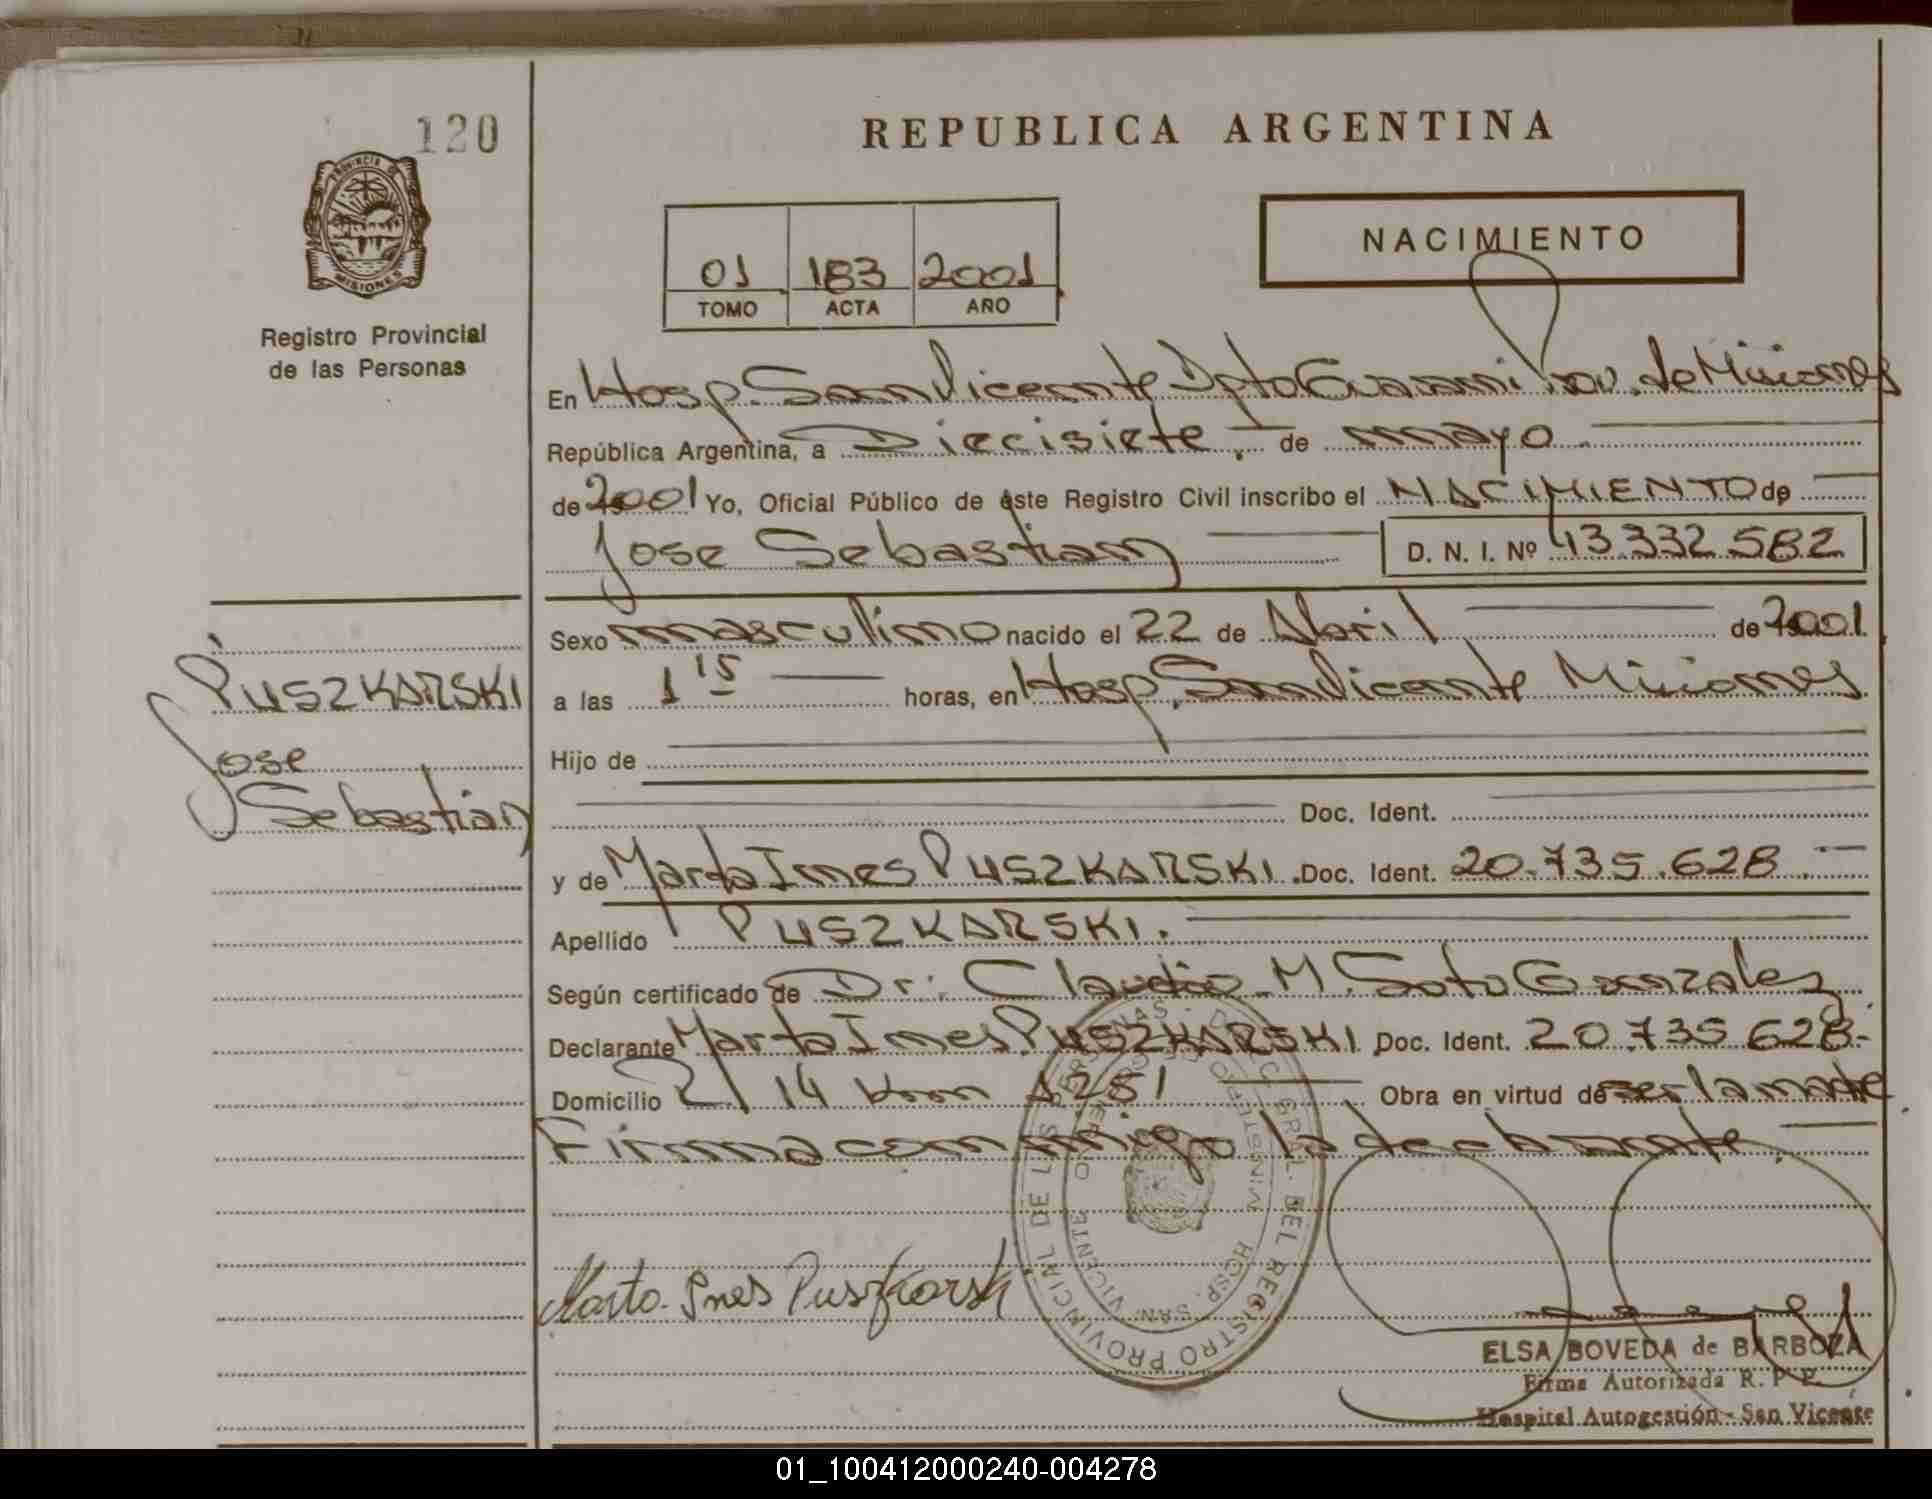 120
REPUBLICA ARGENTINA
PROVINCIA DE
MISIONES
Registro Provincial
de las Personas
NACIMIENTO
01 183 2001
TOMO ACTA AÑO
En Hosp. San Vicente Dpto Guarani Prov. de Misiones
República Argentina, a Diecisiete de mayo
de 2001 Yo, Oficial Público de este Registro Civil inscribo el NACIMIENTO de
Jose Sebastian D. N. I. Nº 43 332 582
Sexo masculino nacido el 22 de Abril de 2001
a las 1 15 horas, en Hosp. San Vicente Misiones
PUSZKARSKI
Jose
Sebastian
Hijo de
Doc. Ident.
y de Marta Ines PUSZKARSKI. Doc. Ident. 20.735.628
Apellido PUSZKARSKI.
Según certificado de Dr. Claudio M. Soto Gonzalez
Declarante Marta Ines PUSZKARSKI Doc. Ident. 20 735 628-
Domicilio 14 km 1281 Obra en virtud de ser la madre
Firma conmigo la declarante.
Marta Ines Puszkarski
REGISTRO PROVINCIAL DE LAS PERSONAS
HOSP. SAN VICENTE
ELSA BOVEDA de BARBOZA
Firma Autorizada R. P. P.
Hospital Autogestión - San Vicente
01_100412000240-004278